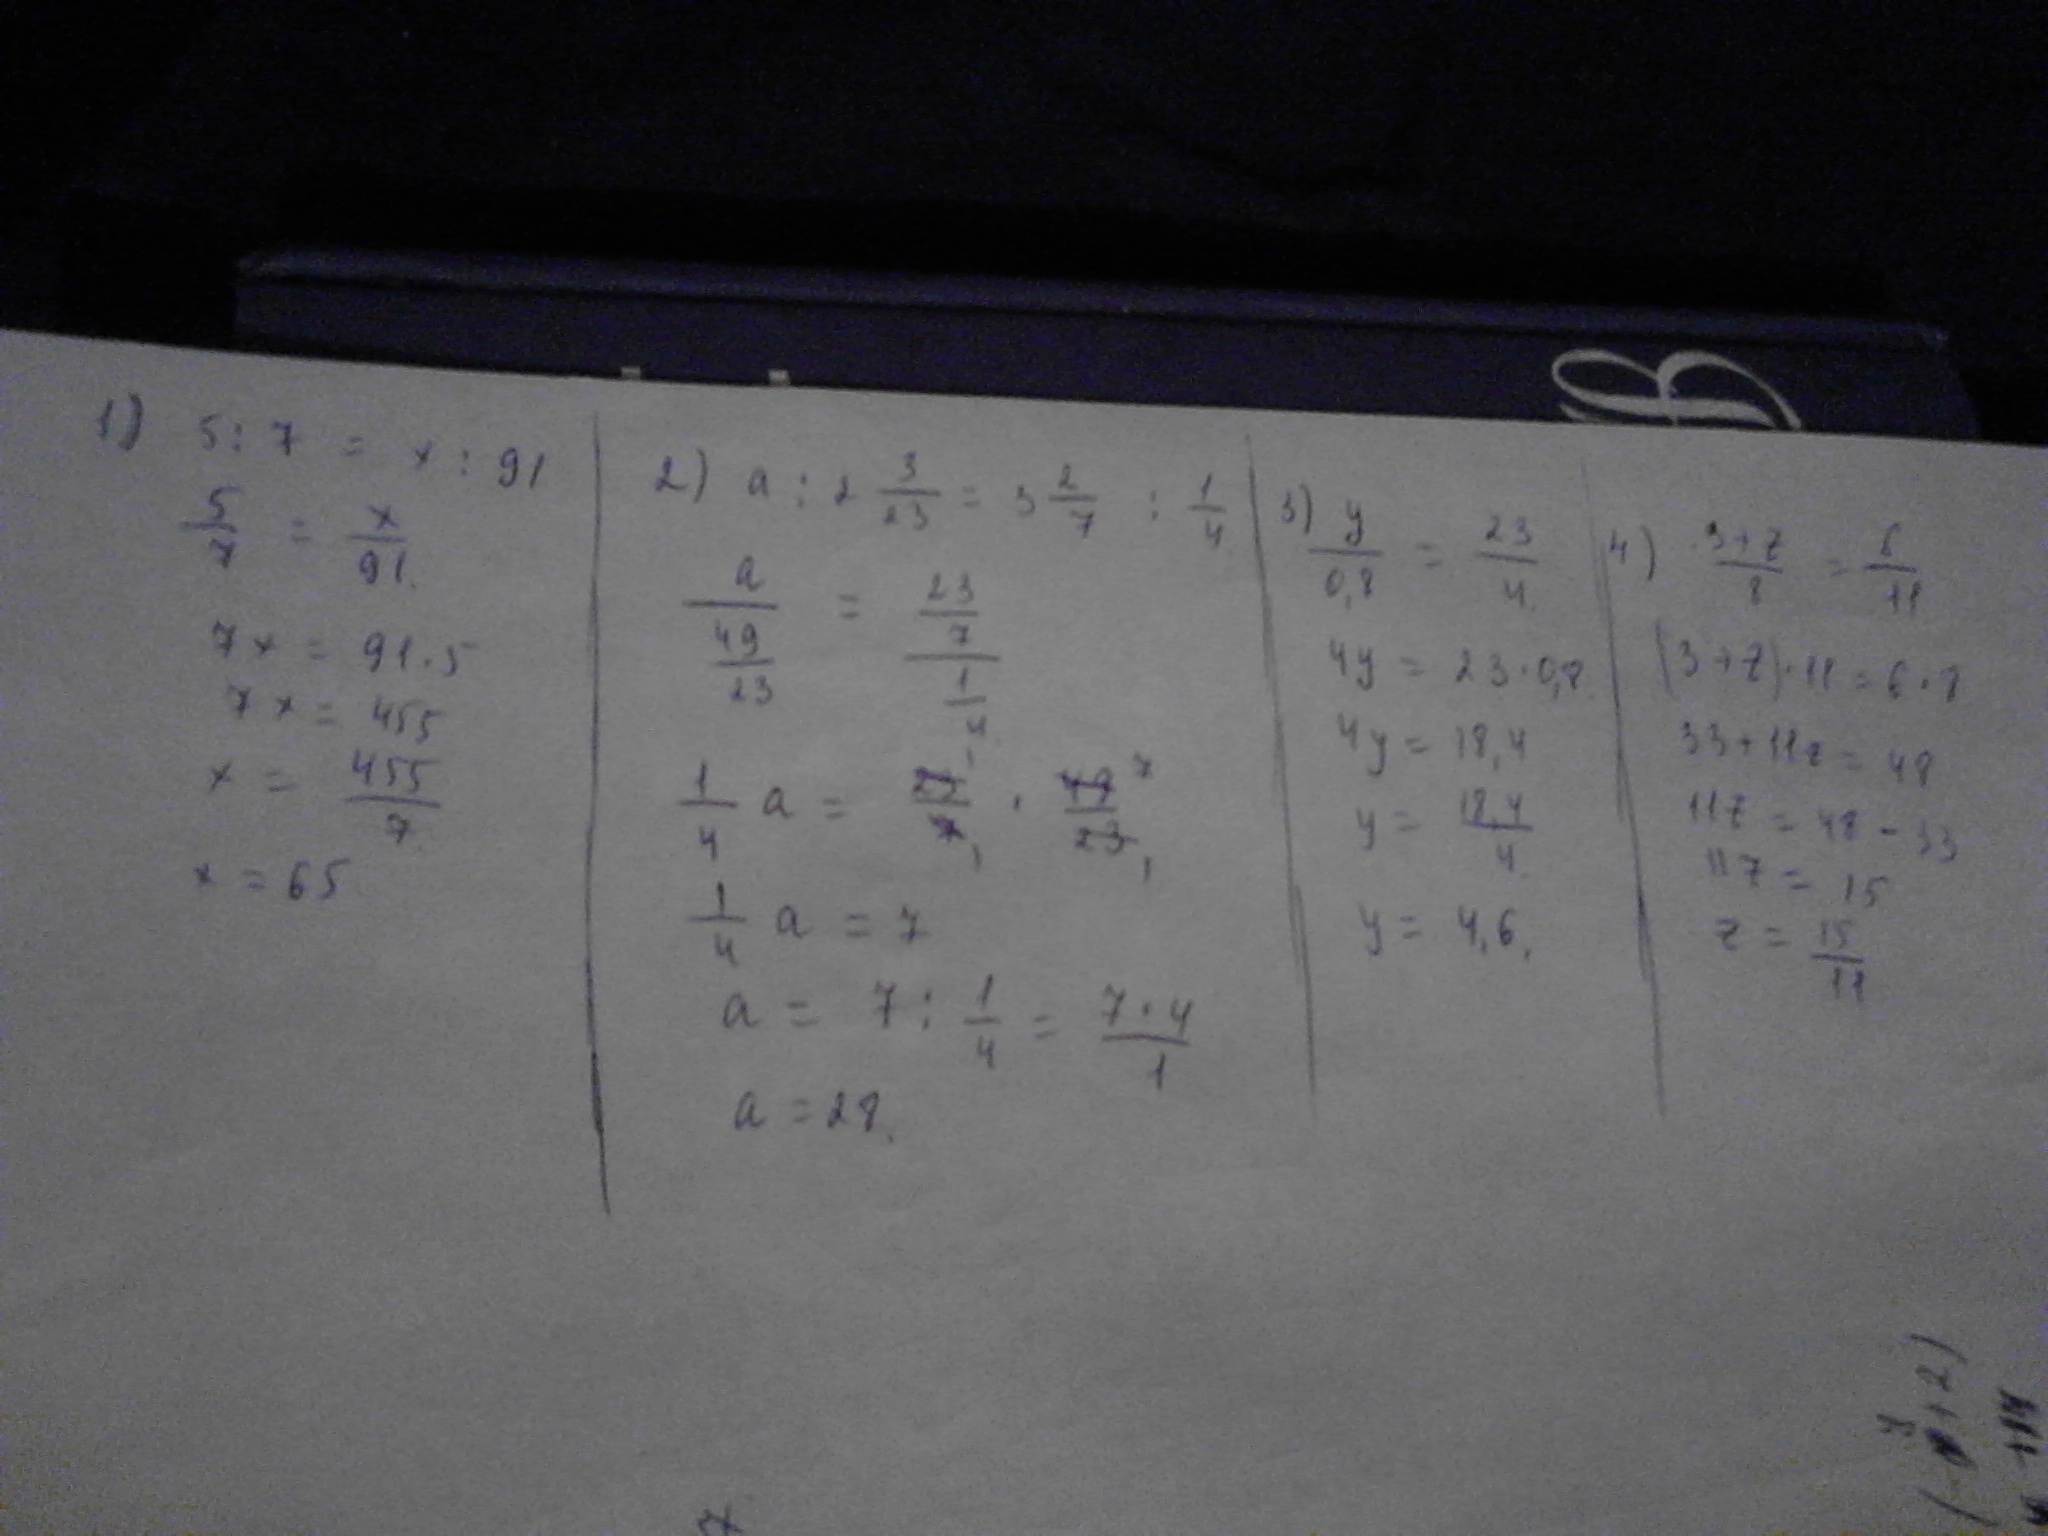 1) 5 : 7 = x : 91
5/7 = x/91
7x = 91 · 5
7x = 455
x = 455/7
x = 65
2) a : 2 3/23 = 3 2/7 : 1/4
a / (49/23) = (23/7) / (1/4)
1/4 a = 23/7 · 49/23
1/4 a = 7
a = 7 : 1/4 = 7·4/1
a = 28.
3) y/0,8 = 23/4
4y = 23 · 0,8
4y = 18,4
y = 18,4/4
y = 4,6.
4) 3+z/8 = 6/11
(3+z) · 11 = 6 · 8
33 + 11z = 48
11z = 48 - 33
11z = 15
z = 15/11